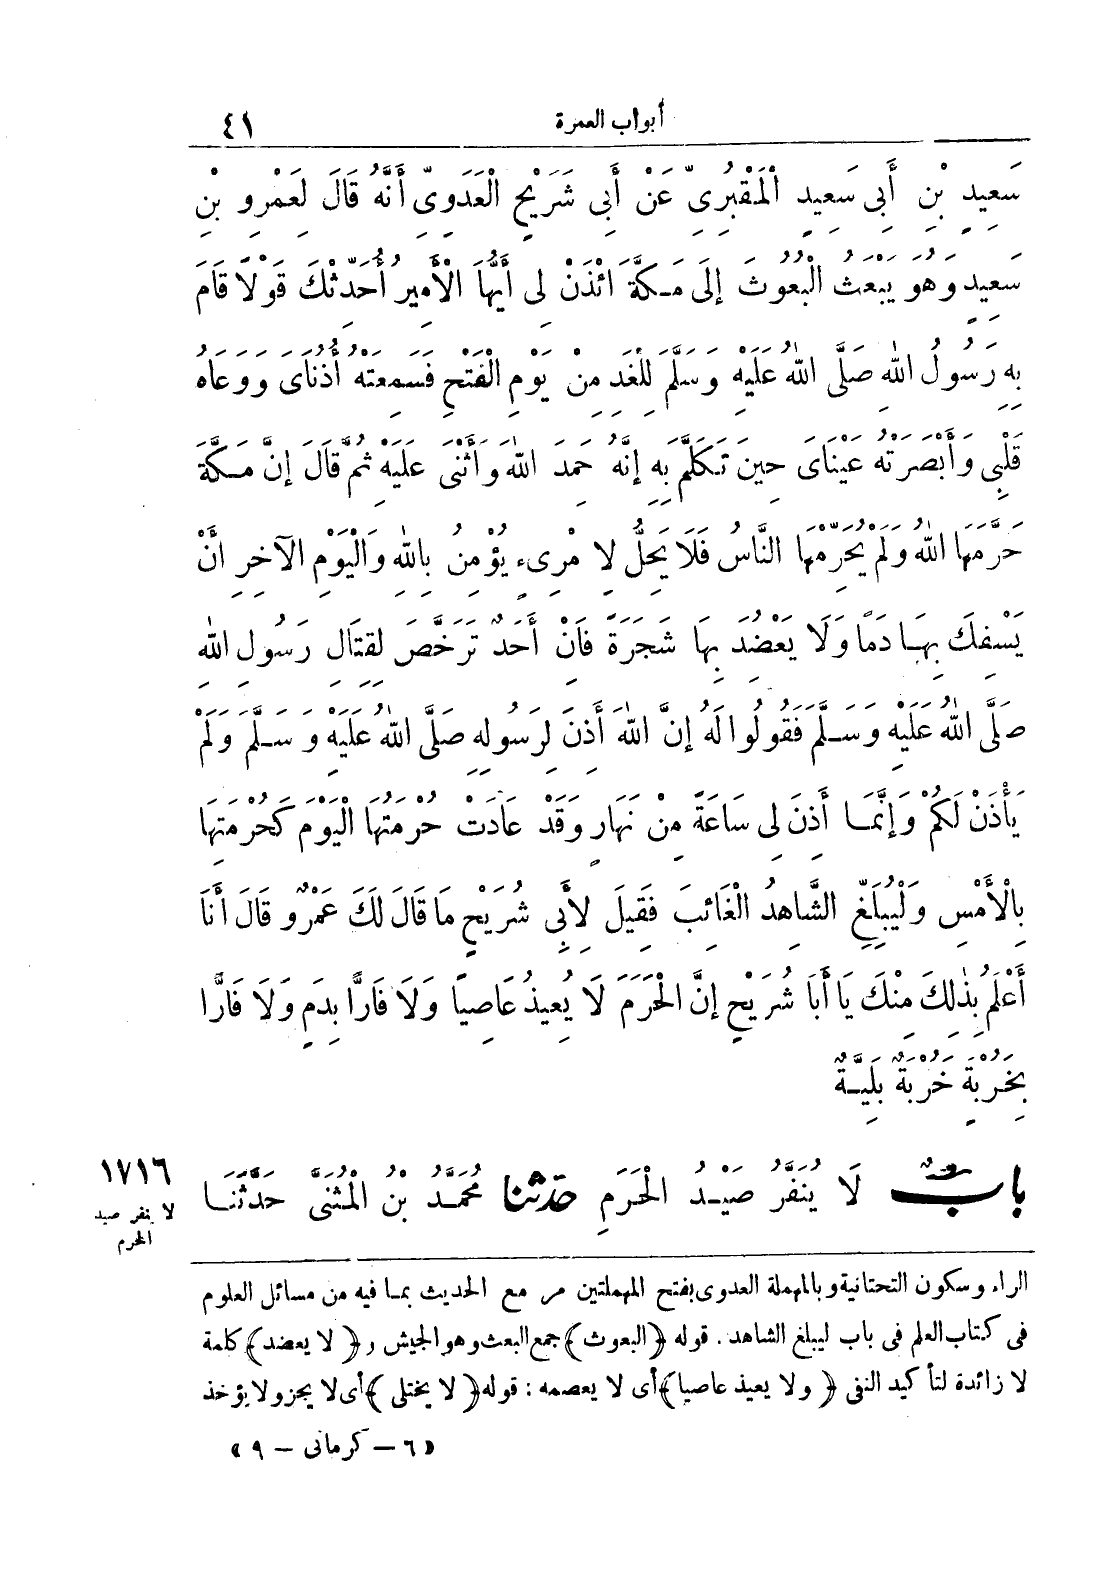 أبواب العمرة ٤١
سَعِيدِ بْنِ أَبِى سَعِيدٍ الْمَقْبُرِىِّ عَنْ أَبِى شُرَيْحٍ الْعَدَوِىِّ أَنَّهُ قَالَ لِعَمْرِو بْنِ
سَعِيدٍ وَهُوَ يَبْعَثُ الْبُعُوثَ إِلَى مَكَّةَ ائْذَنْ لِى أَيُّهَا الْأَمِيرُ أُحَدِّثْكَ قَوْلًا قَامَ
بِهِ رَسُولُ اللهِ صَلَّى اللهُ عَلَيْهِ وَسَلَّمَ لِلْغَدِ مِنْ يَوْمِ الْفَتْحِ فَسَمِعَتْهُ أُذُنَاىَ وَوَعَاهُ
قَلْبِى وَأَبْصَرَتْهُ عَيْنَاىَ حِينَ تَكَلَّمَ بِهِ إِنَّهُ حَمِدَ اللهَ وَأَثْنَى عَلَيْهِ ثُمَّ قَالَ إِنَّ مَكَّةَ
حَرَّمَهَا اللهُ وَلَمْ يُحَرِّمْهَا النَّاسُ فَلَا يَحِلُّ لِامْرِىءٍ يُؤْمِنُ بِاللهِ وَالْيَوْمِ الآخِرِ أَنْ
يَسْفِكَ بِهَا دَمًا وَلَا يَعْضُدَ بِهَا شَجَرَةً فَإِنْ أَحَدٌ تَرَخَّصَ لِقِتَالِ رَسُولِ اللهِ
صَلَّى اللهُ عَلَيْهِ وَسَلَّمَ فَقُولُوا لَهُ إِنَّ اللهَ أَذِنَ لِرَسُولِهِ صَلَّى اللهُ عَلَيْهِ وَسَلَّمَ وَلَمْ
يَأْذَنْ لَكُمْ وَإِنَّمَا أَذِنَ لِى سَاعَةً مِنْ نَهَارٍ وَقَدْ عَادَتْ حُرْمَتُهَا الْيَوْمَ كَحُرْمَتِهَا
بِالْأَمْسِ وَلْيُبَلِّغِ الشَّاهِدُ الْغَائِبَ فَقِيلَ لِأَبِى شُرَيْحٍ مَا قَالَ لَكَ عَمْرٌو قَالَ أَنَا
أَعْلَمُ بِذٰلِكَ مِنْكَ يَا أَبَا شُرَيْحٍ إِنَّ الْحَرَمَ لَا يُعِيذُ عَاصِيًا وَلَا فَارًّا بِدَمٍ وَلَا فَارًّا
بِخَرْبَةٍ خَرْبَةٌ بَلِيَّةٌ
بابٌ لَا يُنَفَّرُ صَيْدُ الْحَرَمِ حَدَّثنا مُحَمَّدُ بْنُ الْمُثَنَّى حَدَّثَنَا
١٧١٦
لا ينفر صيد
الحرم
الراء وسكون التحتانية وبالمهملة العدوى بفتح المهملتين مر مع الحديث بما فيه من مسائل العلوم
فى كتاب العلم فى باب ليبلغ الشاهد . قوله ﴿البعوث﴾ جمع البعث وهو الجيش و﴿لا يعضد﴾ كلمة
لا زائدة لتأكيد النفى ﴿ولا يعيذ عاصيا﴾ أى لا يعصمه : قوله ﴿لا يختلى﴾ أى لا يجز ولا يؤخذ
«٦ – كرمانى – ٩»